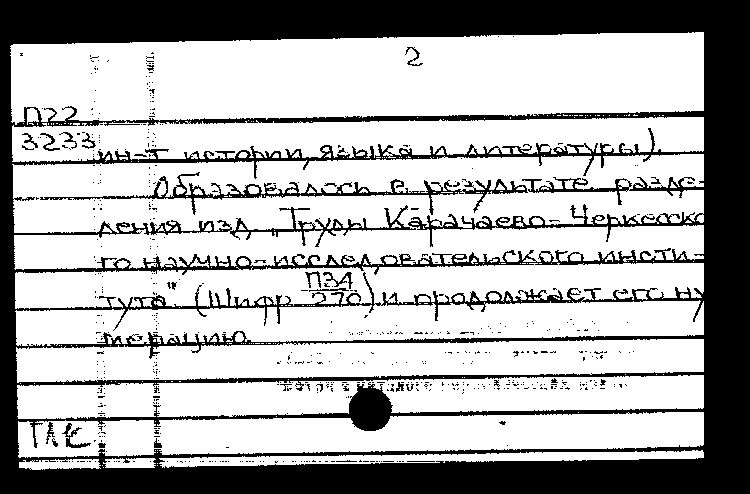 2
П22
3233
ин-т истории, языка и литературы).
Образовалось в результате разде-
ления изд. „Труды Карачаево-Черкесско
го научно-исследовательского инсти-
тута" (Шифр П34/270) и продолжает его ну
мерацию.
ГАК